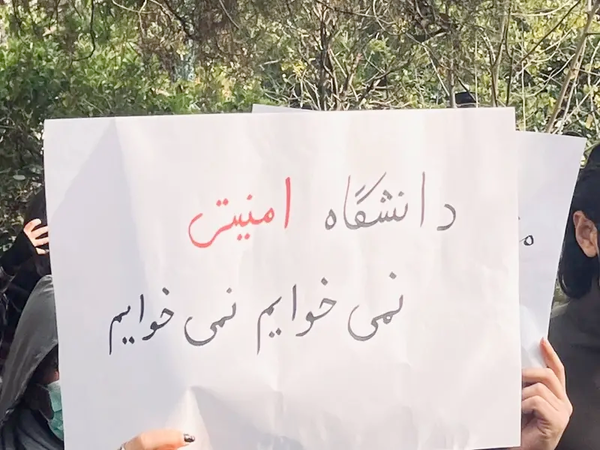 دانشگاه امنیتی
نمی خوایم نمی خوایم